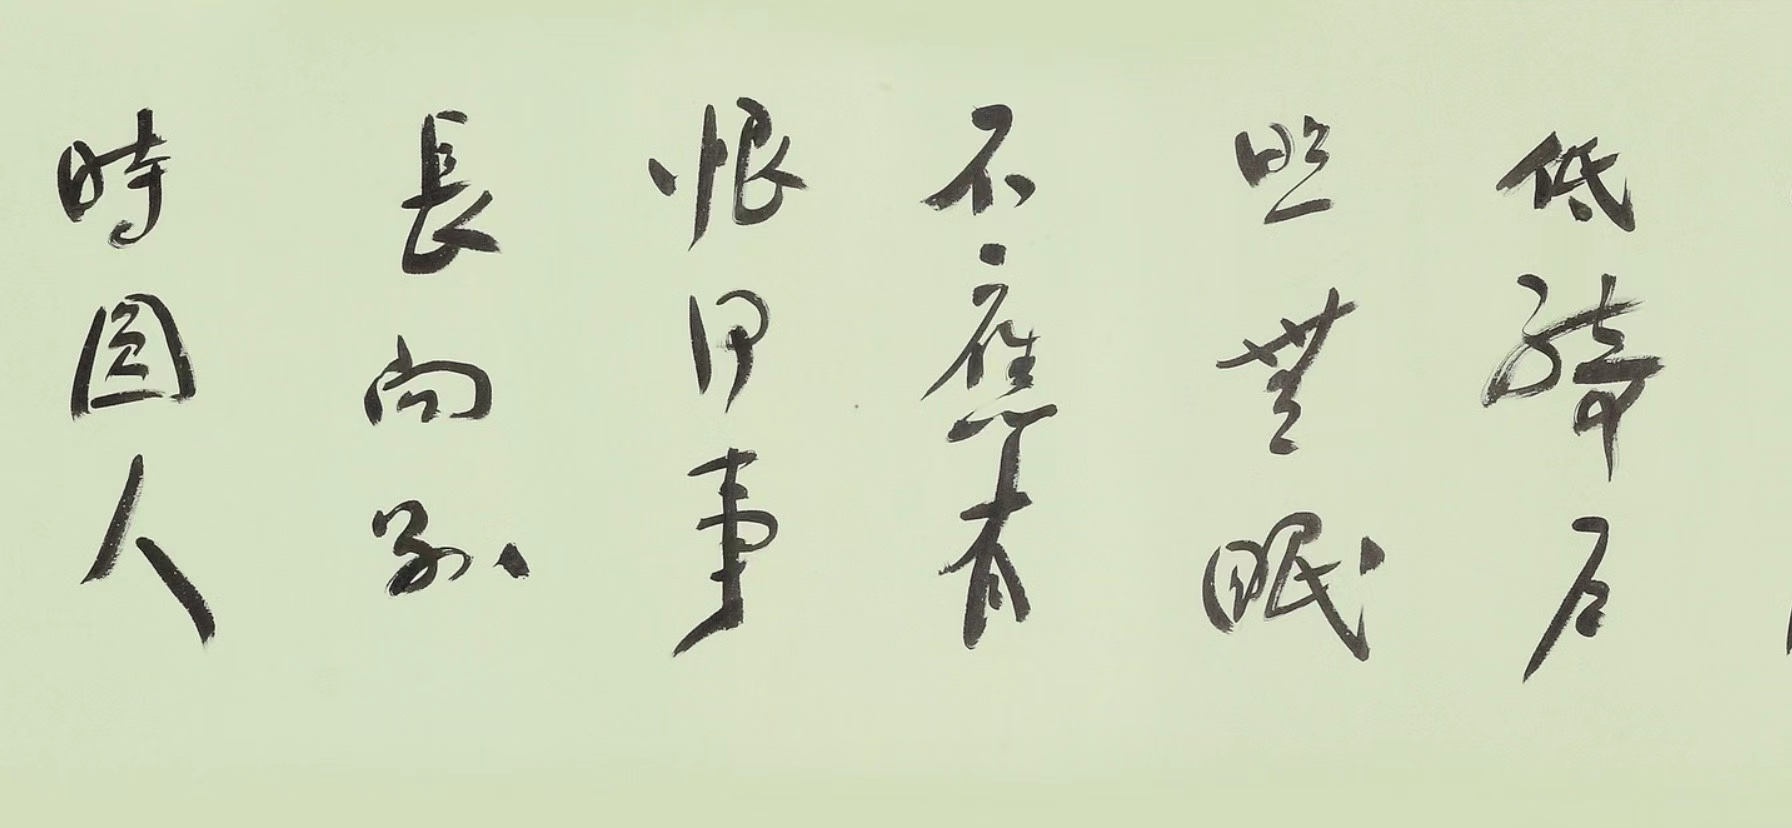 低綺戶
照無眠
不應有
恨何事
長向別
時圓人